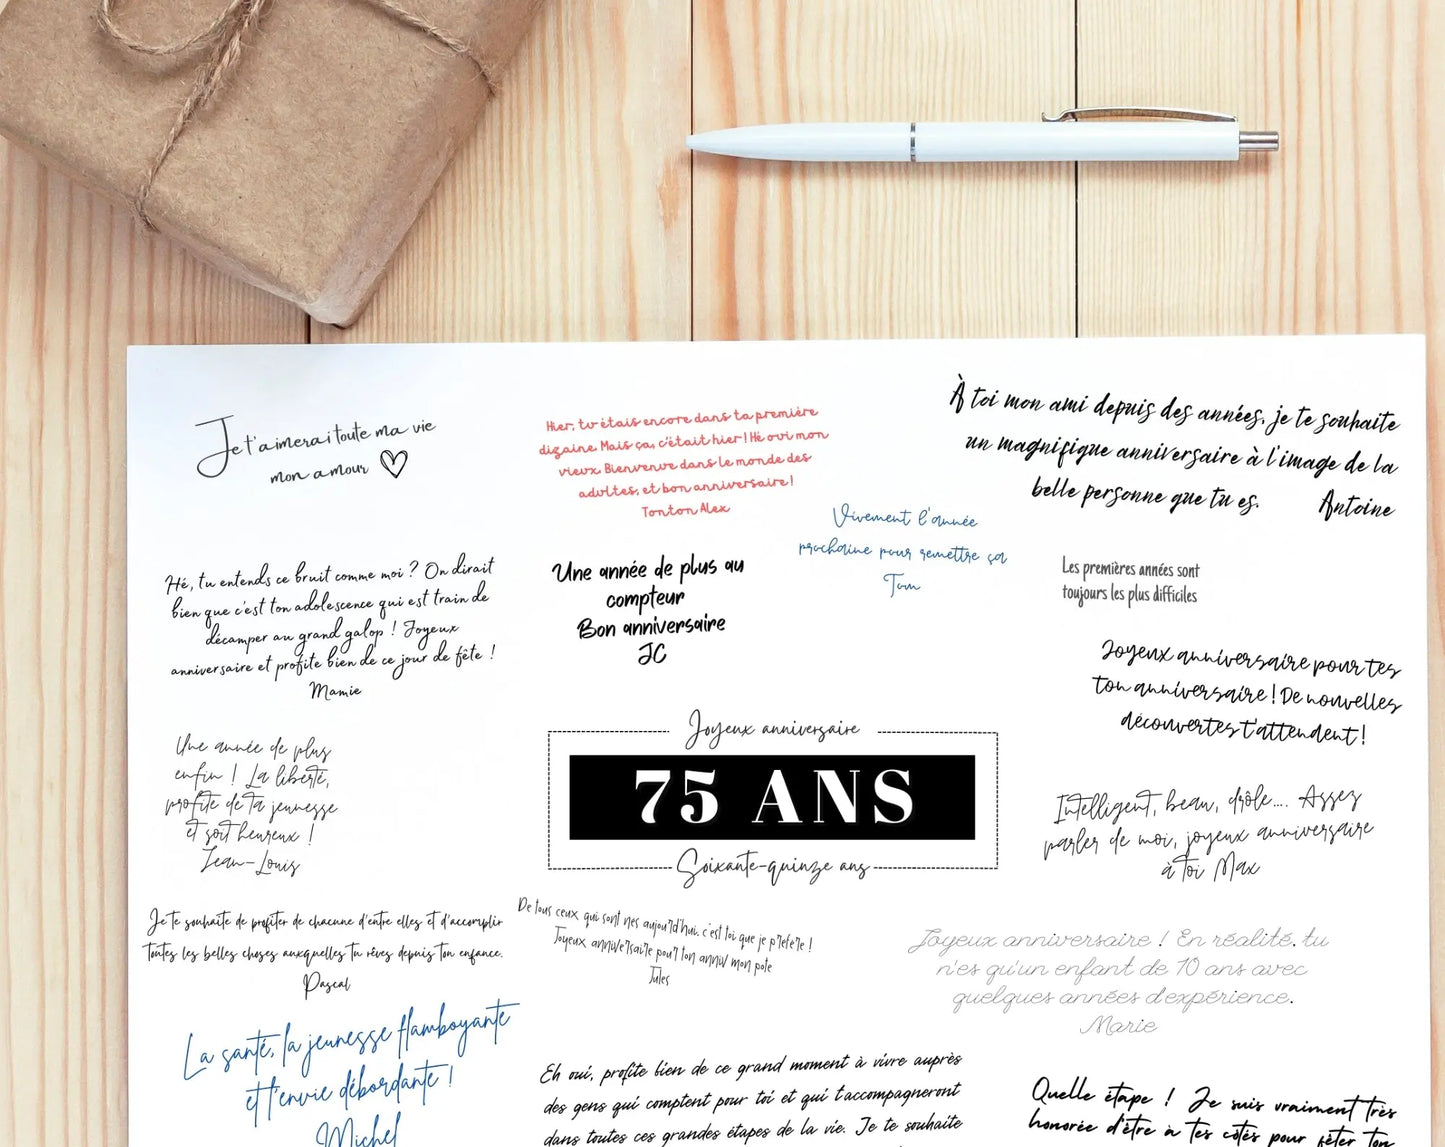 Je t'aimerai toute ma vie
mon amour
Hier, tu étais encore dans ta première
dizaine. Mais ça, c'était hier ! Hé oui mon
vieux. Bienvenue dans le monde des
adultes, et bon anniversaire !
Tonton Alex
À toi mon ami depuis des années, je te souhaite
un magnifique anniversaire à l'image de la
belle personne que tu es. Antoine
Vivement l'année
prochaine pour remettre ça
Tom
Hé, tu entends ce bruit comme moi ? On dirait
bien que c'est ton adolescence qui est train de
décamper au grand galop ! Joyeux
anniversaire et profite bien de ce jour de fête !
Mamie
Une année de plus au
compteur
Bon anniversaire
JC
Les premières années sont
toujours les plus difficiles
Joyeux anniversaire pour tes
ton anniversaire ! De nouvelles
découvertes t'attendent !
Une année de plus
enfin ! La liberté,
profite de ta jeunesse
et soit heureux !
Jean-Louis
Joyeux anniversaire
75 ANS
Soixante-quinze ans
Intelligent, beau, drôle.... Assez
parler de moi, joyeux anniversaire
à toi Max
Je te souhaite de profiter de chacune d'entre elles et d'accomplir
toutes les belles choses auxquelles tu rêves depuis ton enfance.
Pascal
De tous ceux qui sont nés aujourd'hui, c'est toi que je préfère !
Joyeux anniversaire pour ton anniv mon pote
Jules
Joyeux anniversaire ! En réalité, tu
n'es qu'un enfant de 10 ans avec
quelques années d'expérience.
Marie
La santé, la jeunesse flamboyante
et l'envie débordante !
Michel
Eh oui, profite bien de ce grand moment à vivre auprès
des gens qui comptent pour toi et qui t'accompagneront
dans toutes ces grandes étapes de la vie. Je te souhaite
Quelle étape ! Je suis vraiment très
honorée d'être à tes côtés pour fêter ton